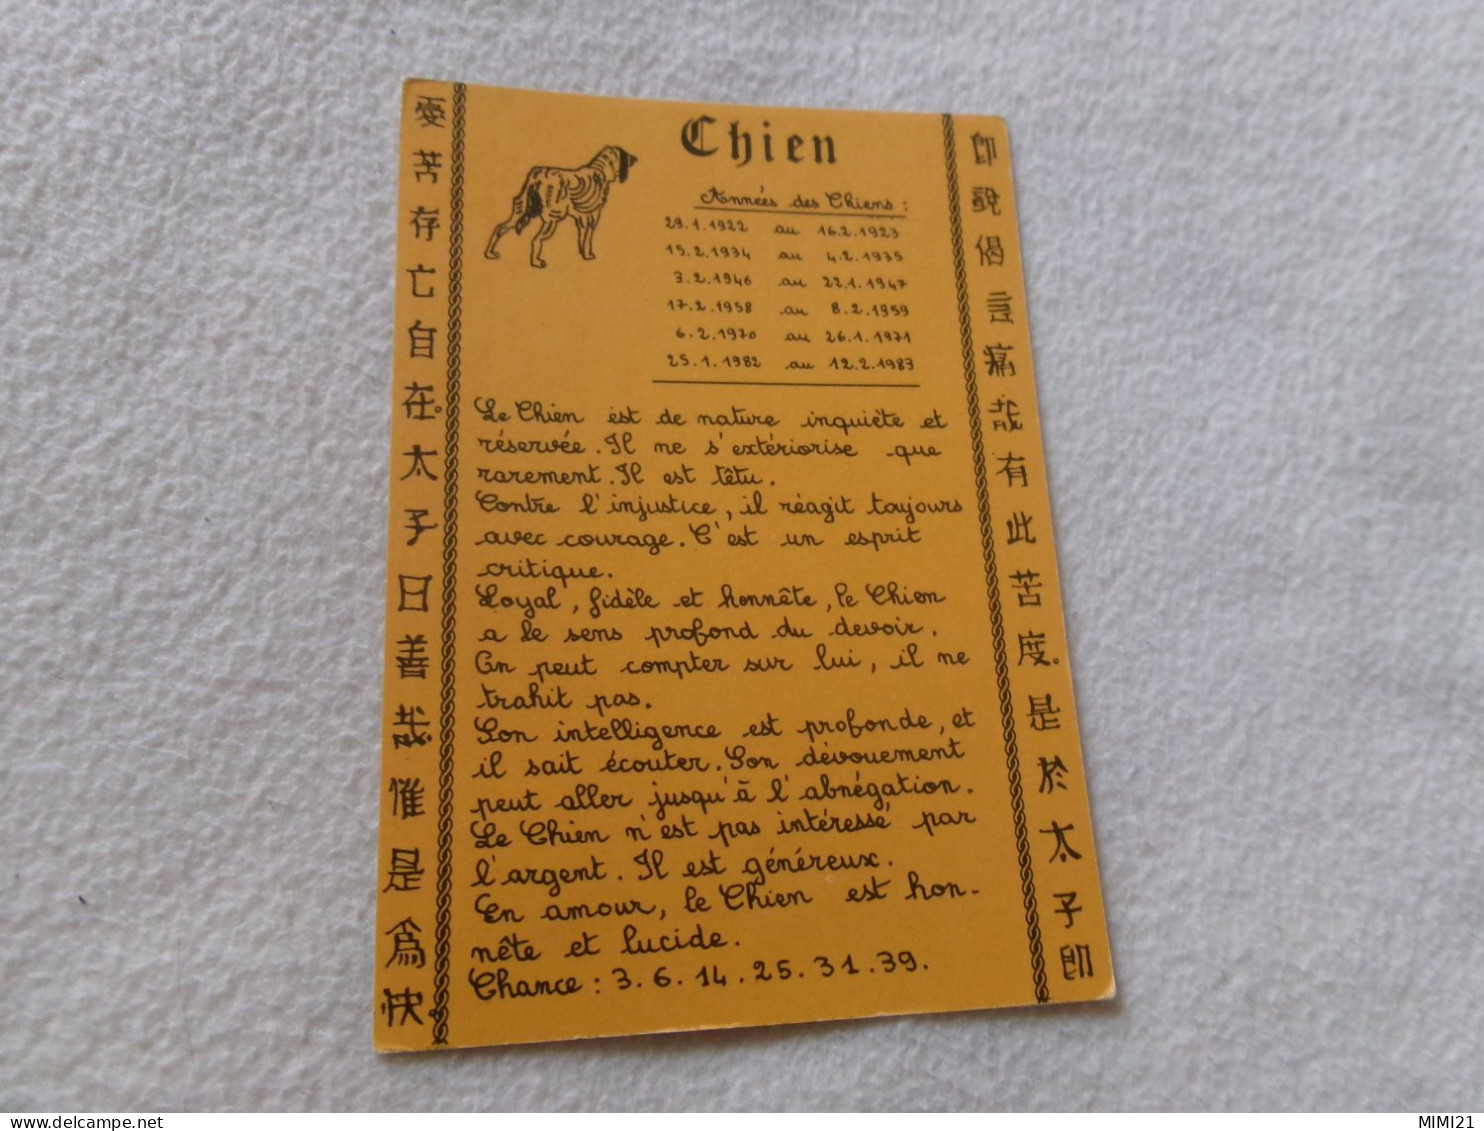 Chien
Années des Chiens :
29.1.1922 au 16.2.1923
15.2.1934 au 4.2.1935
3.2.1946 au 22.1.1947
17.2.1958 au 8.2.1959
6.2.1970 au 26.1.1971
25.1.1982 au 12.2.1983
Le Chien est de nature inquiète et
réservée. Il ne s'extériorise que
rarement. Il est têtu.
Contre l'injustice, il réagit toujours
avec courage. C'est un esprit
critique.
Loyal, fidèle et honnête, le Chien
a le sens profond du devoir.
On peut compter sur lui, il ne
trahit pas.
Son intelligence est profonde, et
il sait écouter. Son dévouement
peut aller jusqu'à l'abnégation.
Le Chien n'est pas intéressé par
l'argent. Il est généreux.
En amour, le Chien est hon-
nête et lucide.
Chance : 3.6.14.25.31.39.
苦存亡自在。太子曰善哉惟是為快。
即說偈言痛哉有此苦度。是於太子即
MIMI21